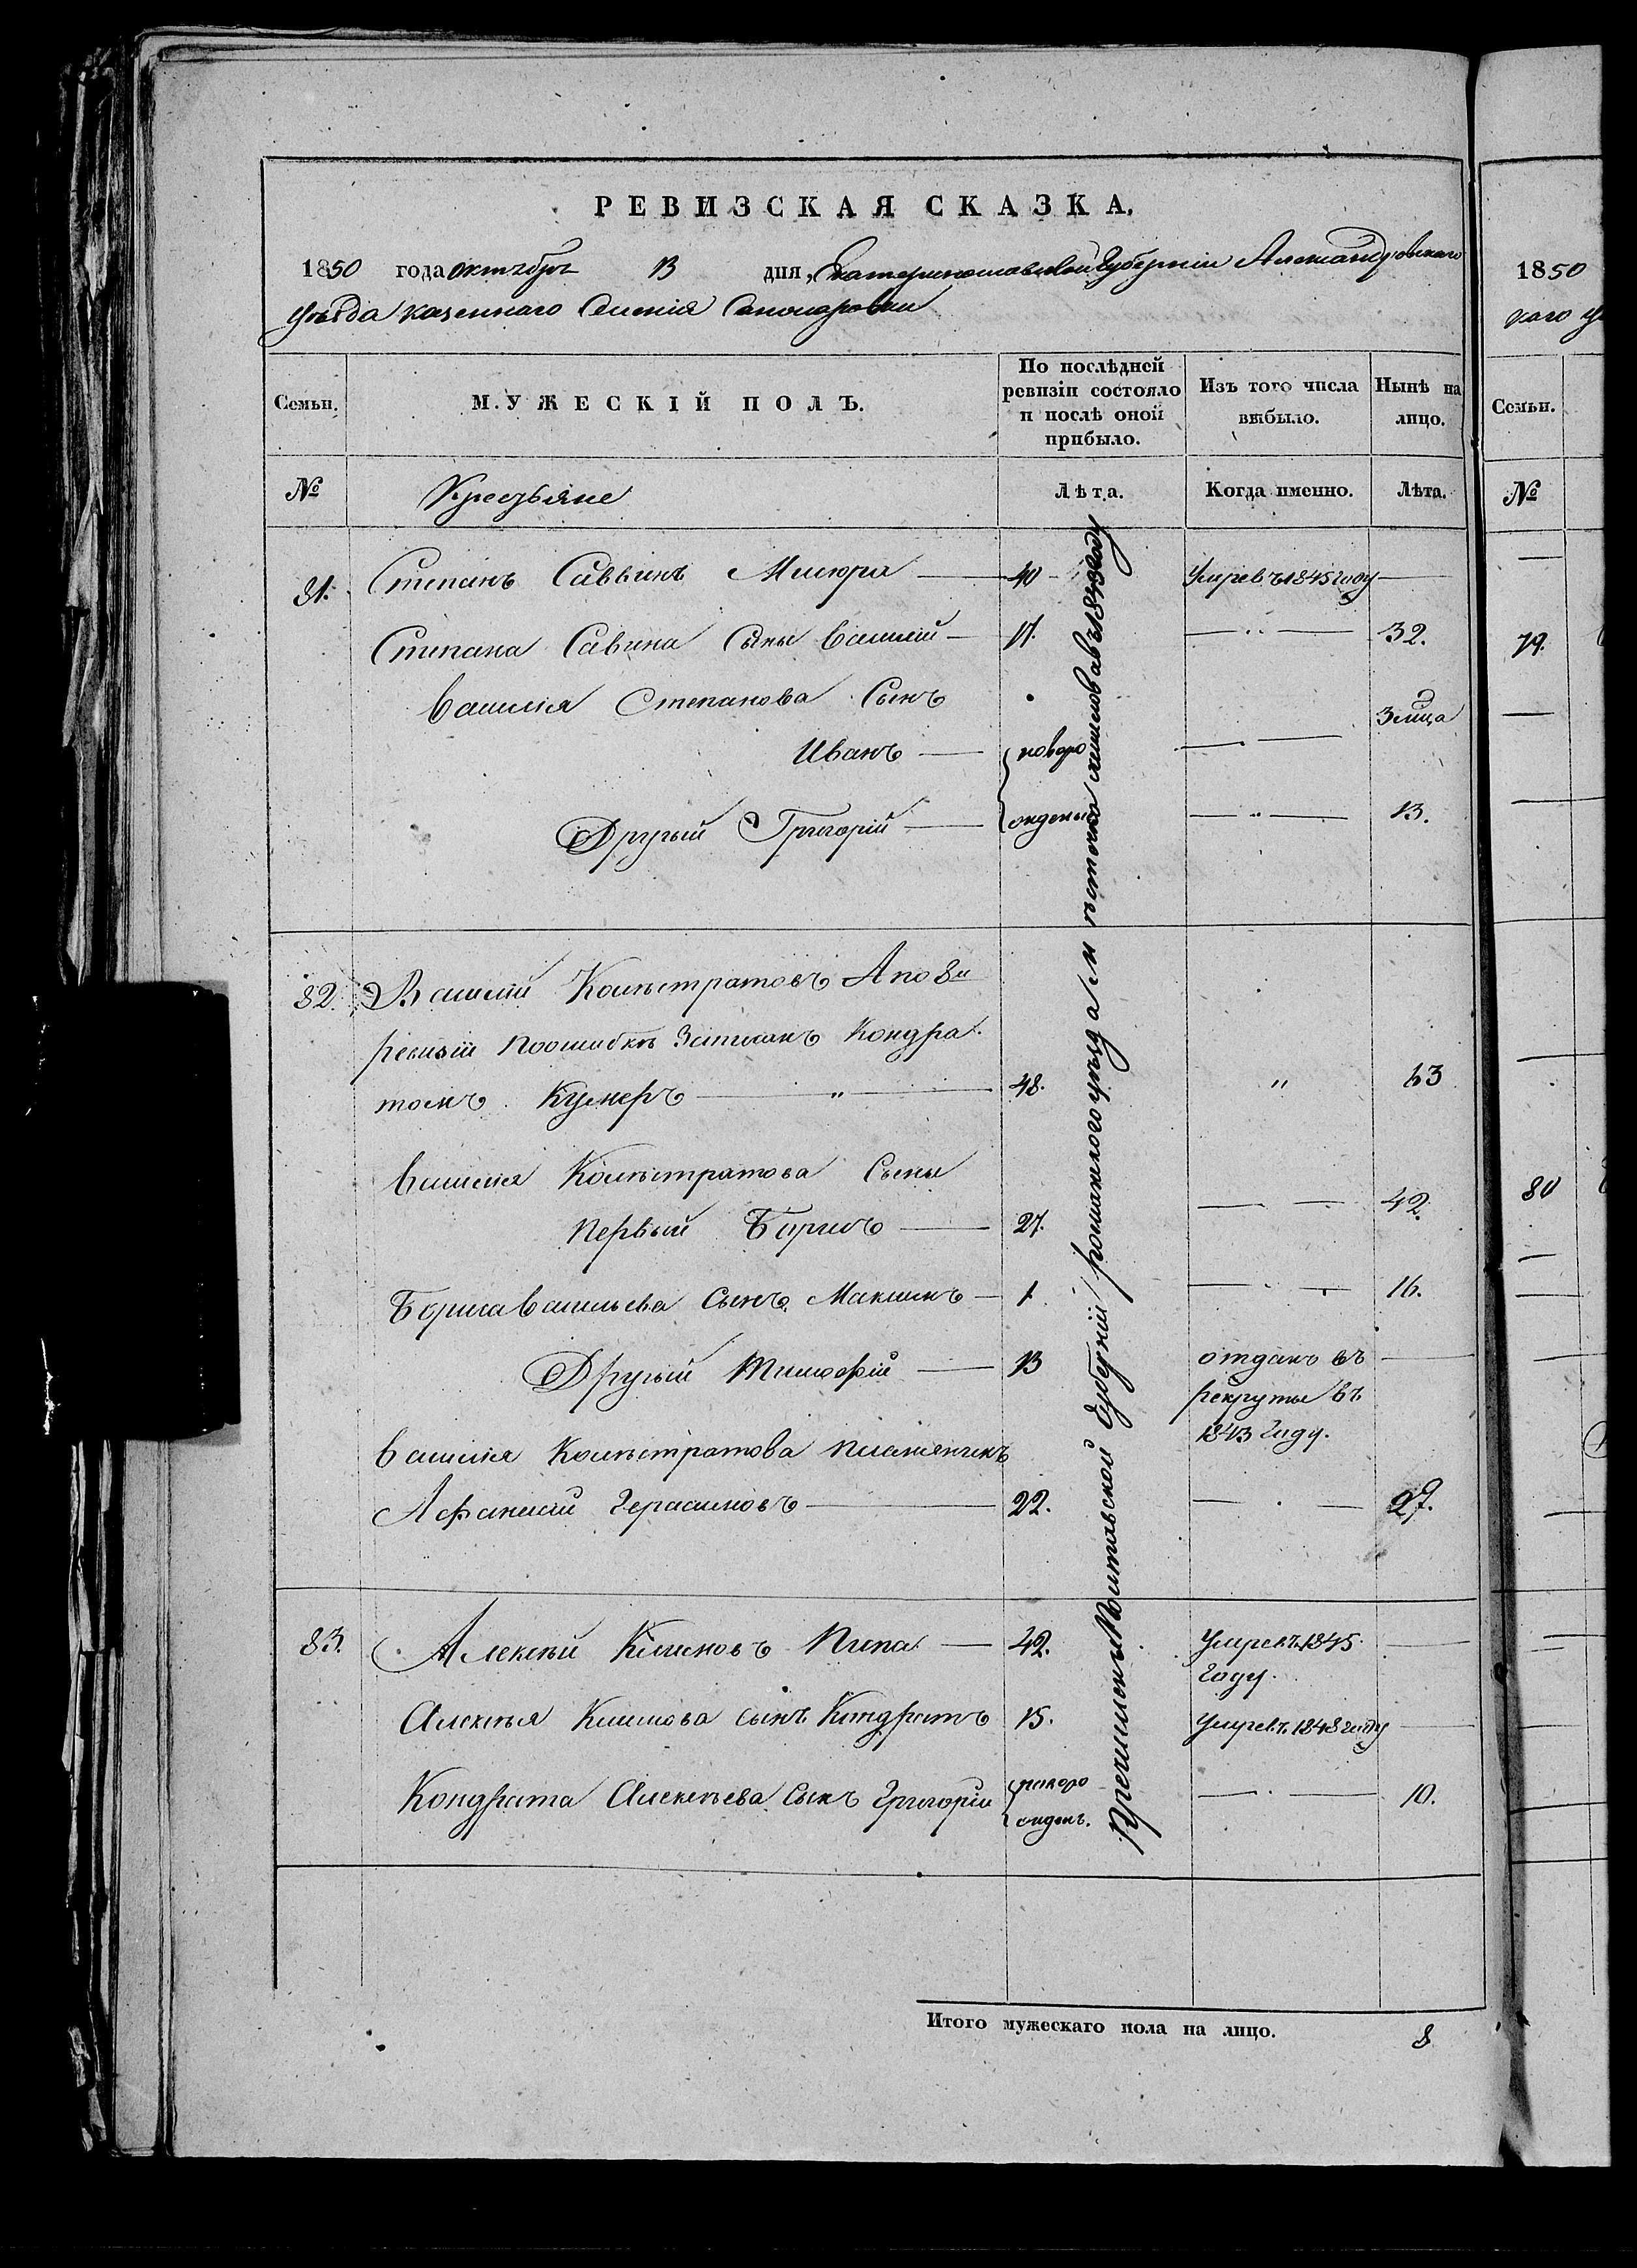 РЕВИЗСКАЯ СКАЗКА.
1850 года октября 13 дня, Екатеринославской Губернии Александровскаго
уѣзда казеннаго Селенія
Семьи.
МУЖЕСКІЙ ПОЛЪ.
По послѣдней ревизіи состояло и послѣ оной прибыло.
Изъ того числа выбыло.
Ныне на лицо.
№
Крестьяне
Лѣта.
Когда именно.
Лѣта.
81. Степанъ Саввинъ — 40 Умре въ 1845 году —
Степана Савина Сыны Василій — 17. — " — 32.
Василія Степанова Сынъ
Иванъ — новоро — . — 3 м͠ца
Другій Григорій — жденые — " — 13.
82. Василій Каллистратовъ А по 8й
ревизіи по ошибкѣ Записанъ Кондра
томъ Кушнеръ — " — 48. " 63
Василія Каллистратова Сыны
Первый Борисъ — 27. — . — 42.
Бориса Васильева Сынъ Максимъ — 1 — . — 16.
Другій Тимофій — 13 отданъ въ —
рекруты въ
1843 Году.
Василія Каллистратова племянникъ
Афанасій Герасимовъ — 22. — . — 27.
83. Алексѣй Климовъ — 42. Умре въ 1845 —
Году.
Алексѣя Климова сынъ Кондратъ 15. Умре въ 1848 году —
Кондрата Алексѣева Сынъ Григорій новоро — . — 10.
жденъ.
Полтавской Губерніи уѣзда мѣстечка въ 1843 Году
Итого мужескаго пола на лицо. 8
1850
каго
Семьи.
№
79.
80